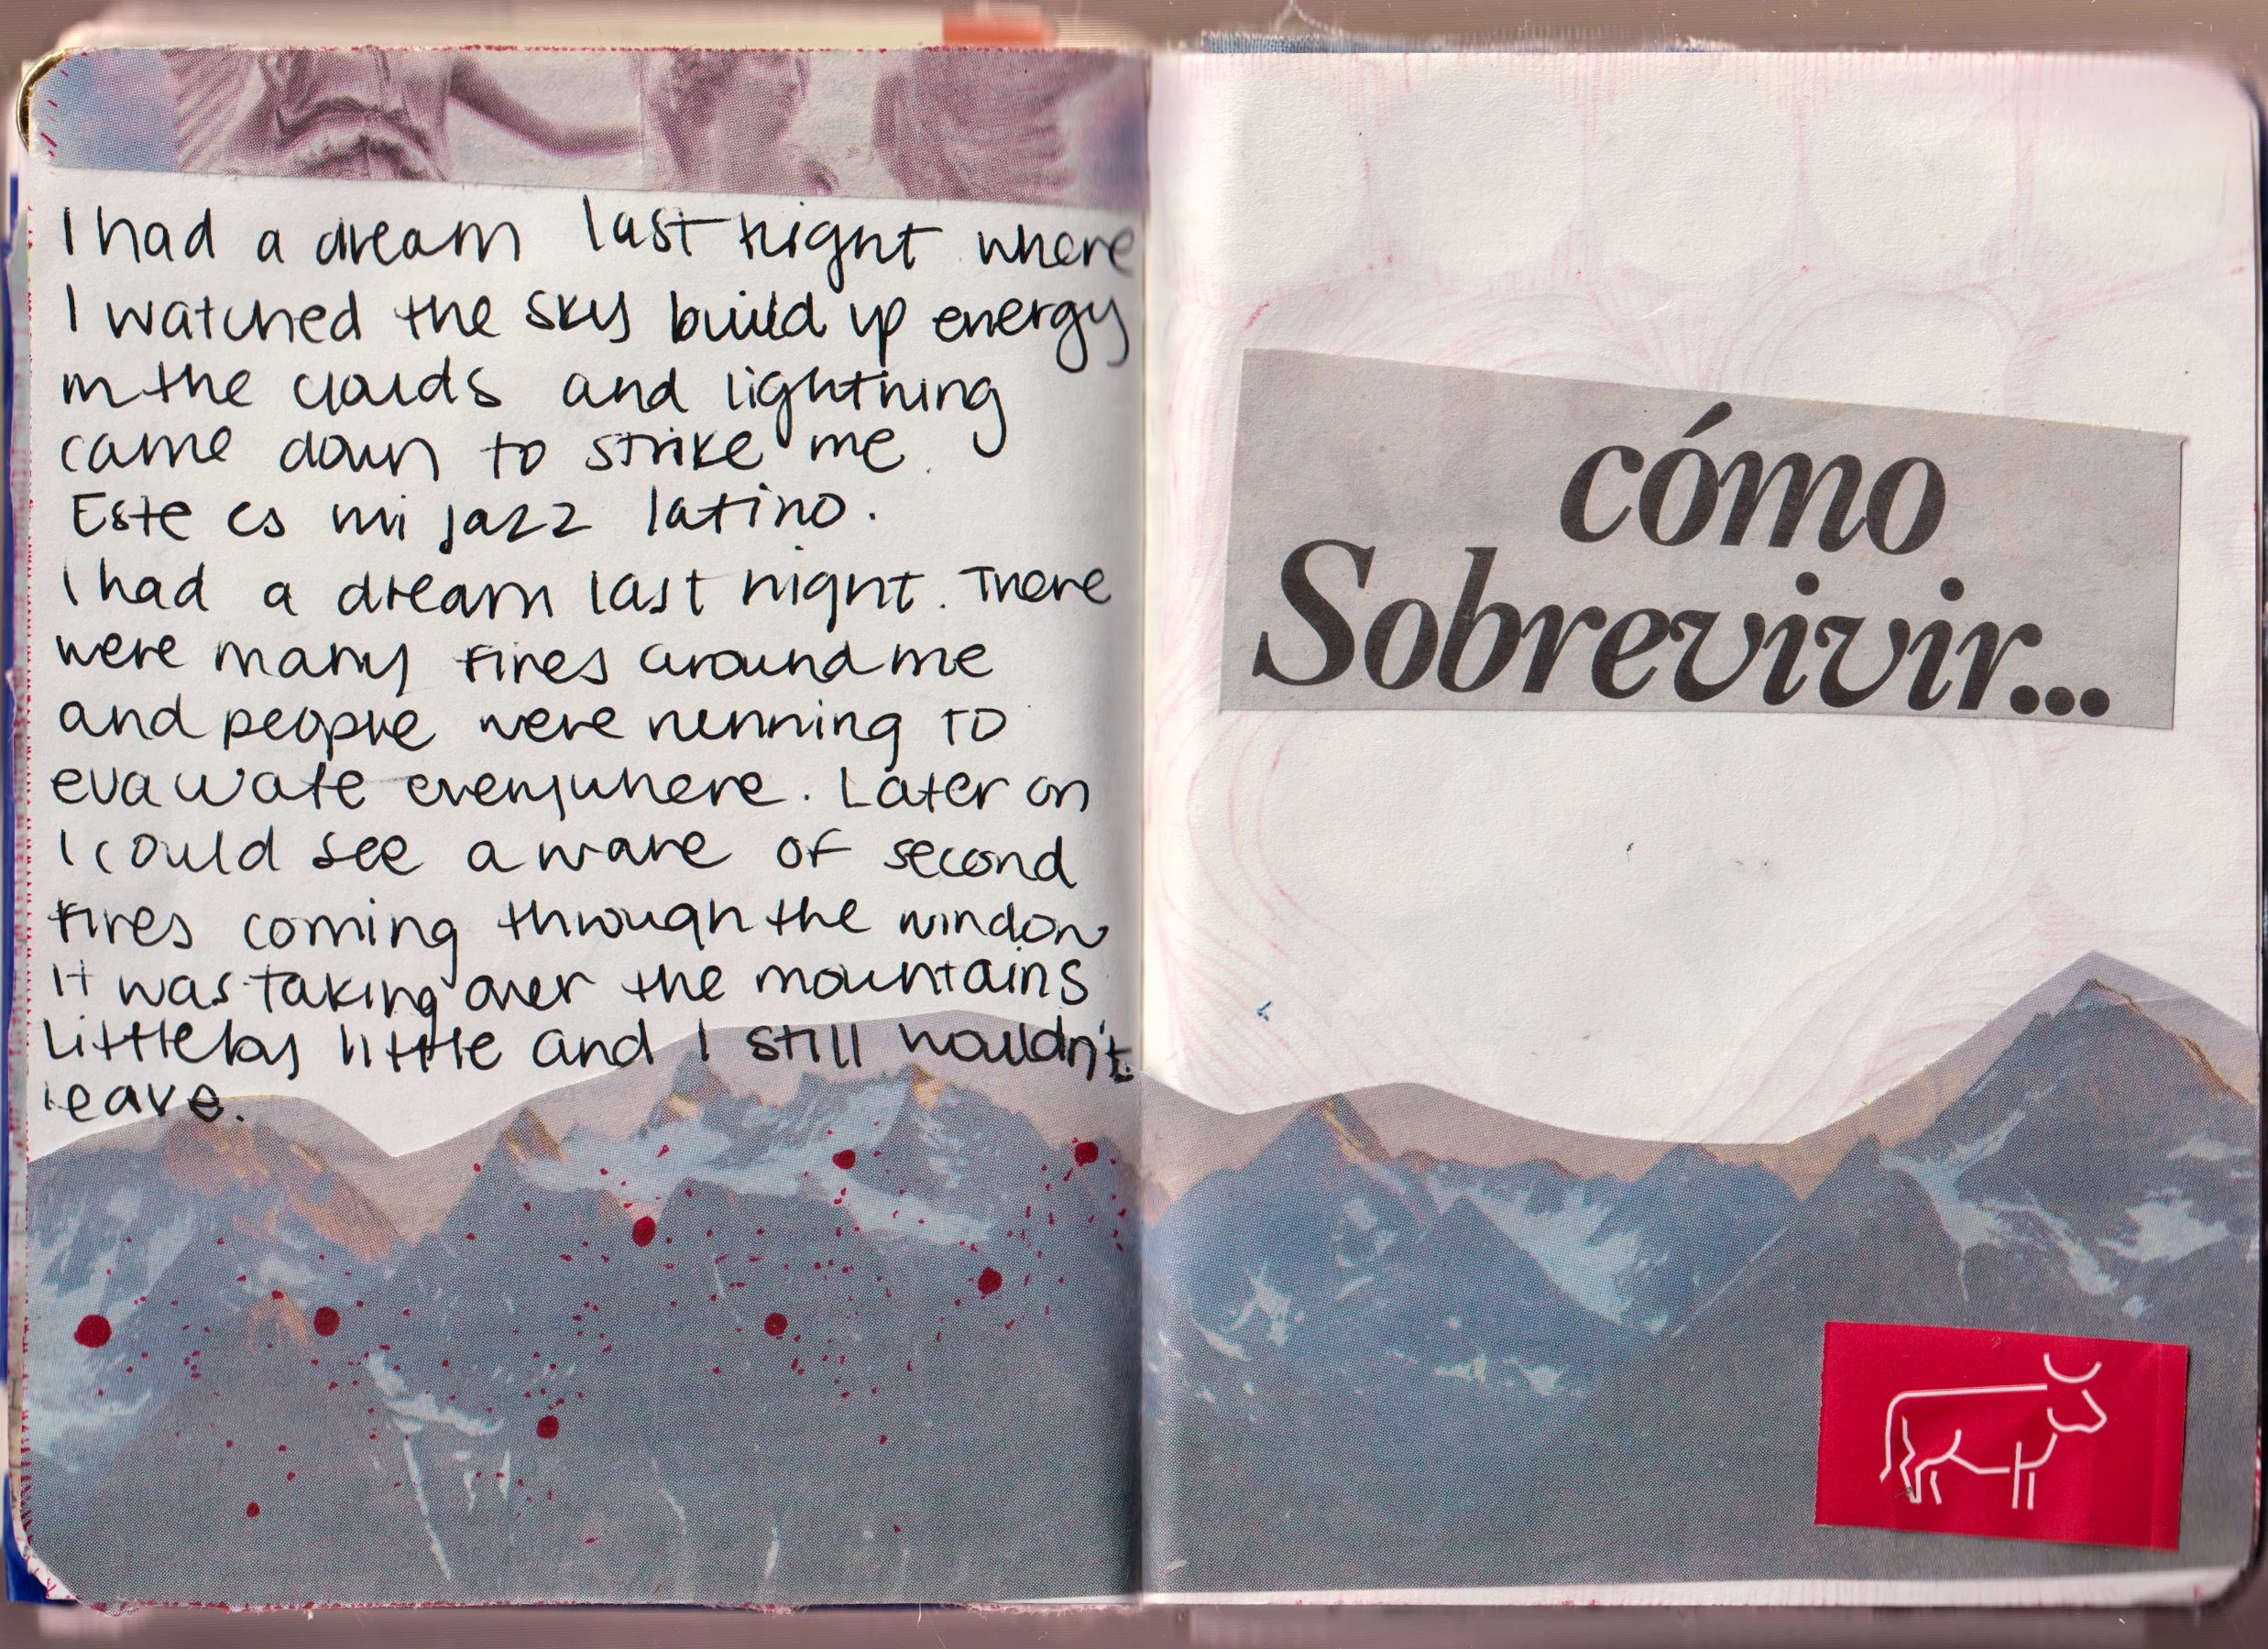 I had a dream last night where
I watched the sky build up energy
in the clouds and lightning
came down to strike me.
Este es mi jazz latino.
I had a dream last night. There
were many fires around me
and people were running to
evacuate everywhere. Later on
I could see a wave of second
fires coming through the window
It was taking over the mountains
little by little and I still wouldn't
leave.
cómo
Sobrevivir...